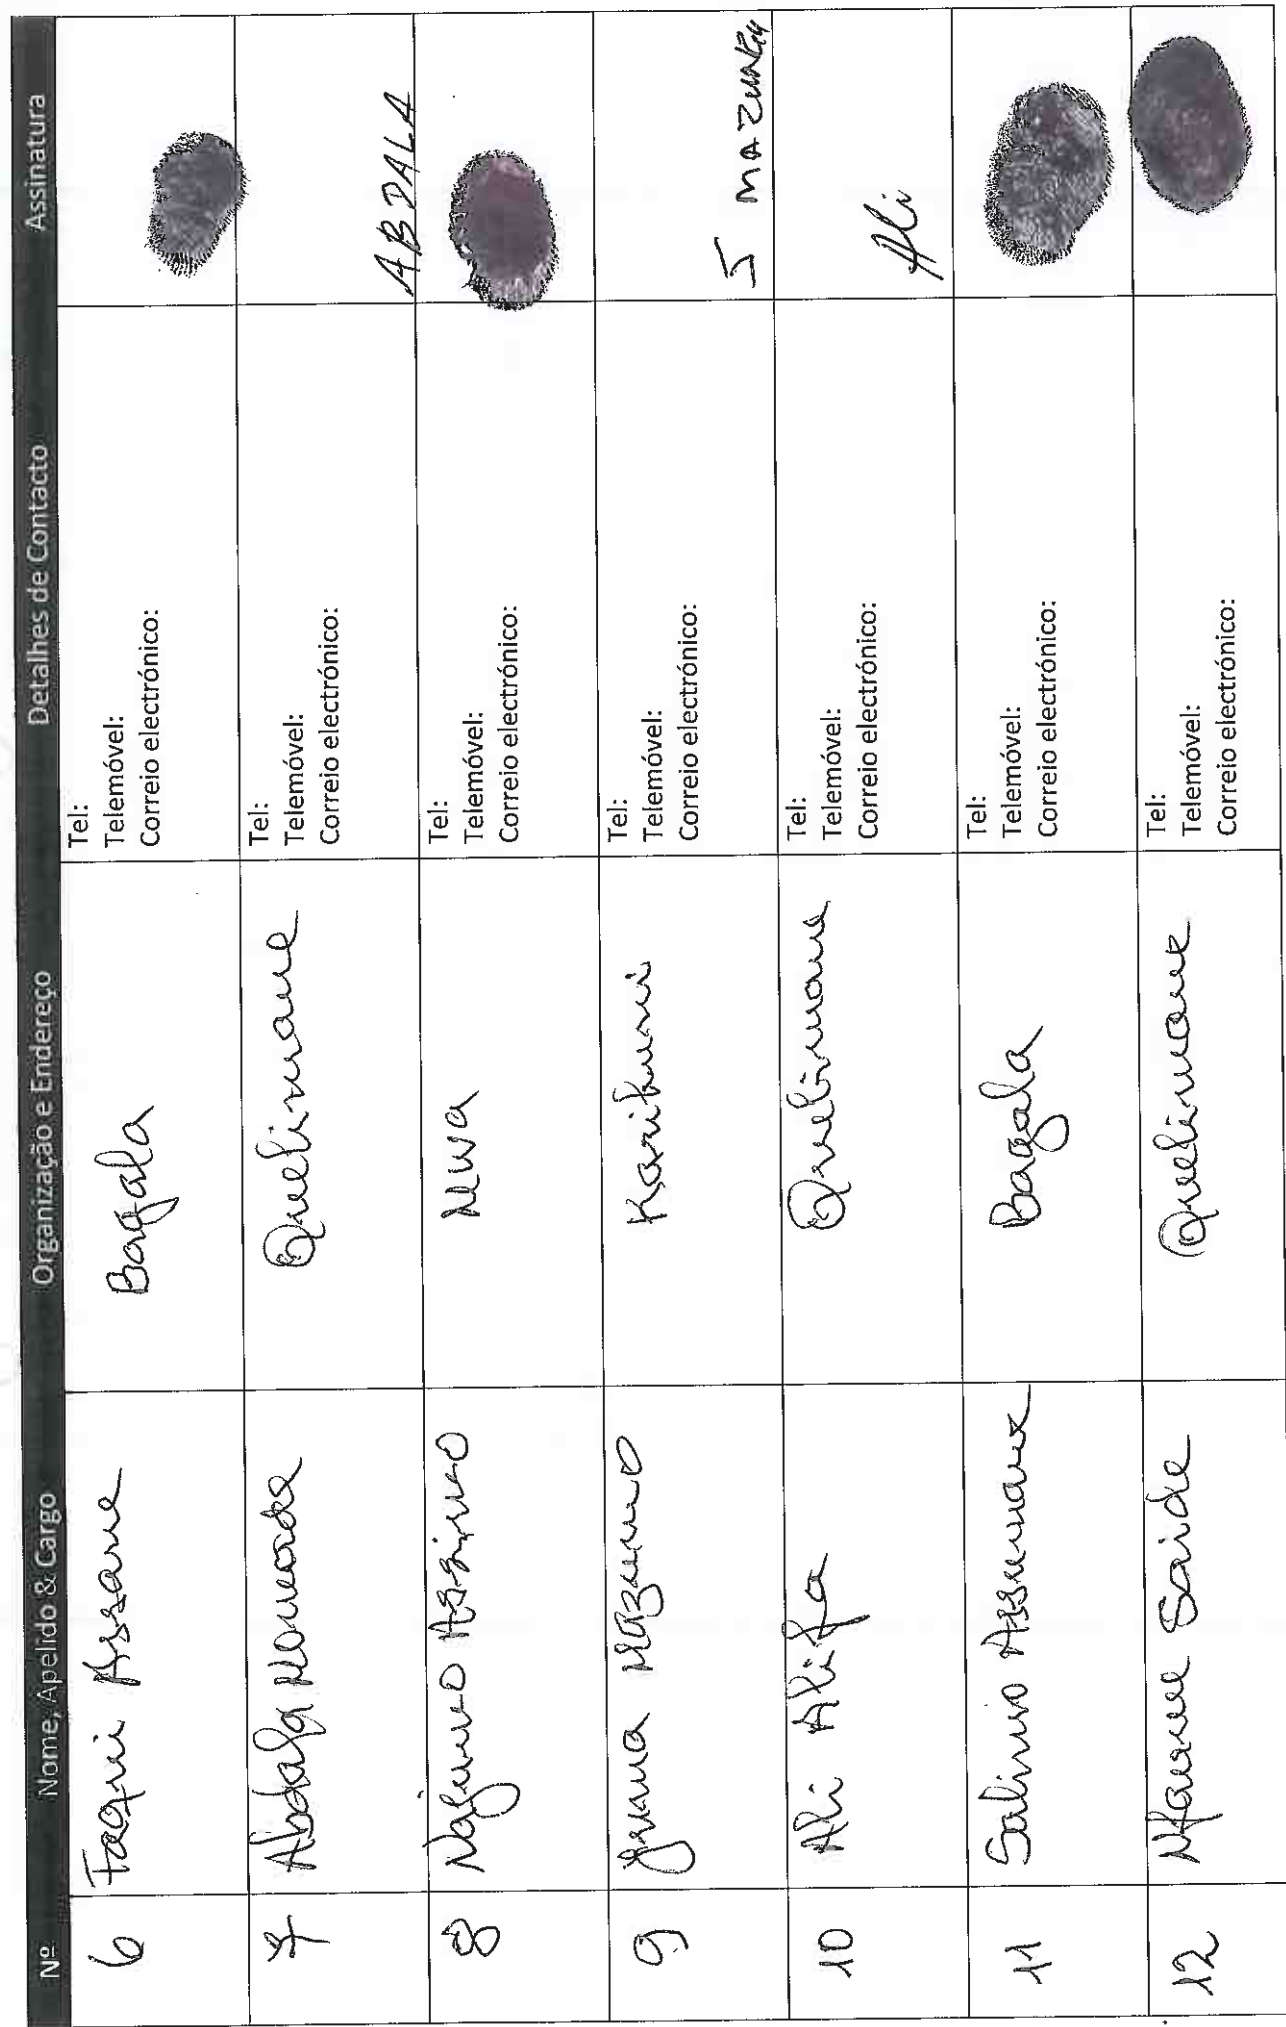 Nº Nome, Apelido & Cargo Organização e Endereço Detalhes de Contacto Assinatura
6 Faqui Assane Bagala Tel:
Telemóvel:
Correio electrónico:
7 Abdala Momade Quelimane Tel:
Telemóvel:
Correio electrónico:
ABDALA
8 Assimo Tel:
Telemóvel:
Correio electrónico:
9 Mazumo Karibuni Tel:
Telemóvel:
Correio electrónico:
10 Ali Alifa Quelimane Tel:
Telemóvel:
Correio electrónico:
Ali
11 Salimo Assumane Bagala Tel:
Telemóvel:
Correio electrónico:
12 Nfaume Saide Quelimane Tel:
Telemóvel:
Correio electrónico: